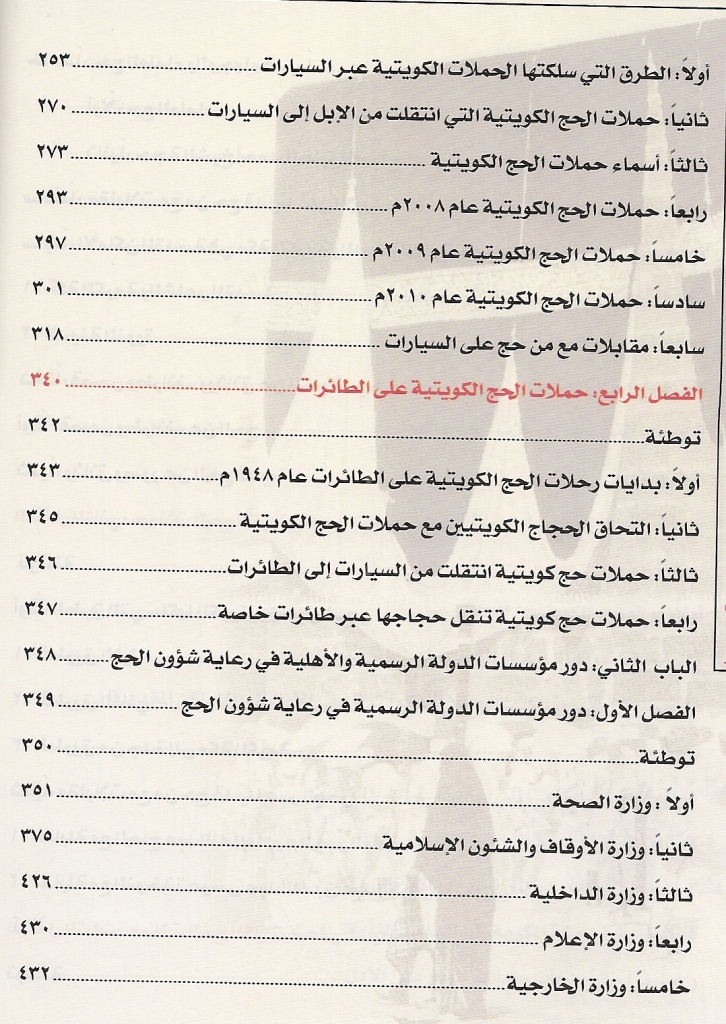 أولاً: الطرق التي سلكتها الحملات الكويتية عبر السيارات ........ ٢٥٣
ثانياً: حملات الحج الكويتية التي انتقلت من الإبل إلى السيارات ........ ٢٧٠
ثالثاً: أسماء حملات الحج الكويتية ........ ٢٧٣
رابعاً: حملات الحج الكويتية عام ٢٠٠٨م ........ ٢٩٣
خامساً: حملات الحج الكويتية عام ٢٠٠٩م ........ ٢٩٧
سادساً: حملات الحج الكويتية عام ٢٠١٠م ........ ٣٠١
سابعاً: مقابلات مع من حج على السيارات ........ ٣١٨
الفصل الرابع: حملات الحج الكويتية على الطائرات ........ ٣٤٠
توطئة ........ ٣٤٢
أولاً: بدايات رحلات الحج الكويتية على الطائرات عام ١٩٤٨م ........ ٣٤٣
ثانياً: التحاق الحجاج الكويتيين مع حملات الحج الكويتية ........ ٣٤٥
ثالثاً: حملات حج كويتية انتقلت من السيارات إلى الطائرات ........ ٣٤٦
رابعاً: حملات حج كويتية تنقل حجاجها عبر طائرات خاصة ........ ٣٤٧
الباب الثاني: دور مؤسسات الدولة الرسمية والأهلية في رعاية شؤون الحج ........ ٣٤٨
الفصل الأول: دور مؤسسات الدولة الرسمية في رعاية شؤون الحج ........ ٣٤٩
توطئة ........ ٣٥٠
أولاً : وزارة الصحة ........ ٣٥١
ثانياً: وزارة الأوقاف والشئون الإسلامية ........ ٣٧٥
ثالثاً: وزارة الداخلية ........ ٤٢٦
رابعاً: وزارة الإعلام ........ ٤٣٠
خامساً: وزارة الخارجية ........ ٤٣٢